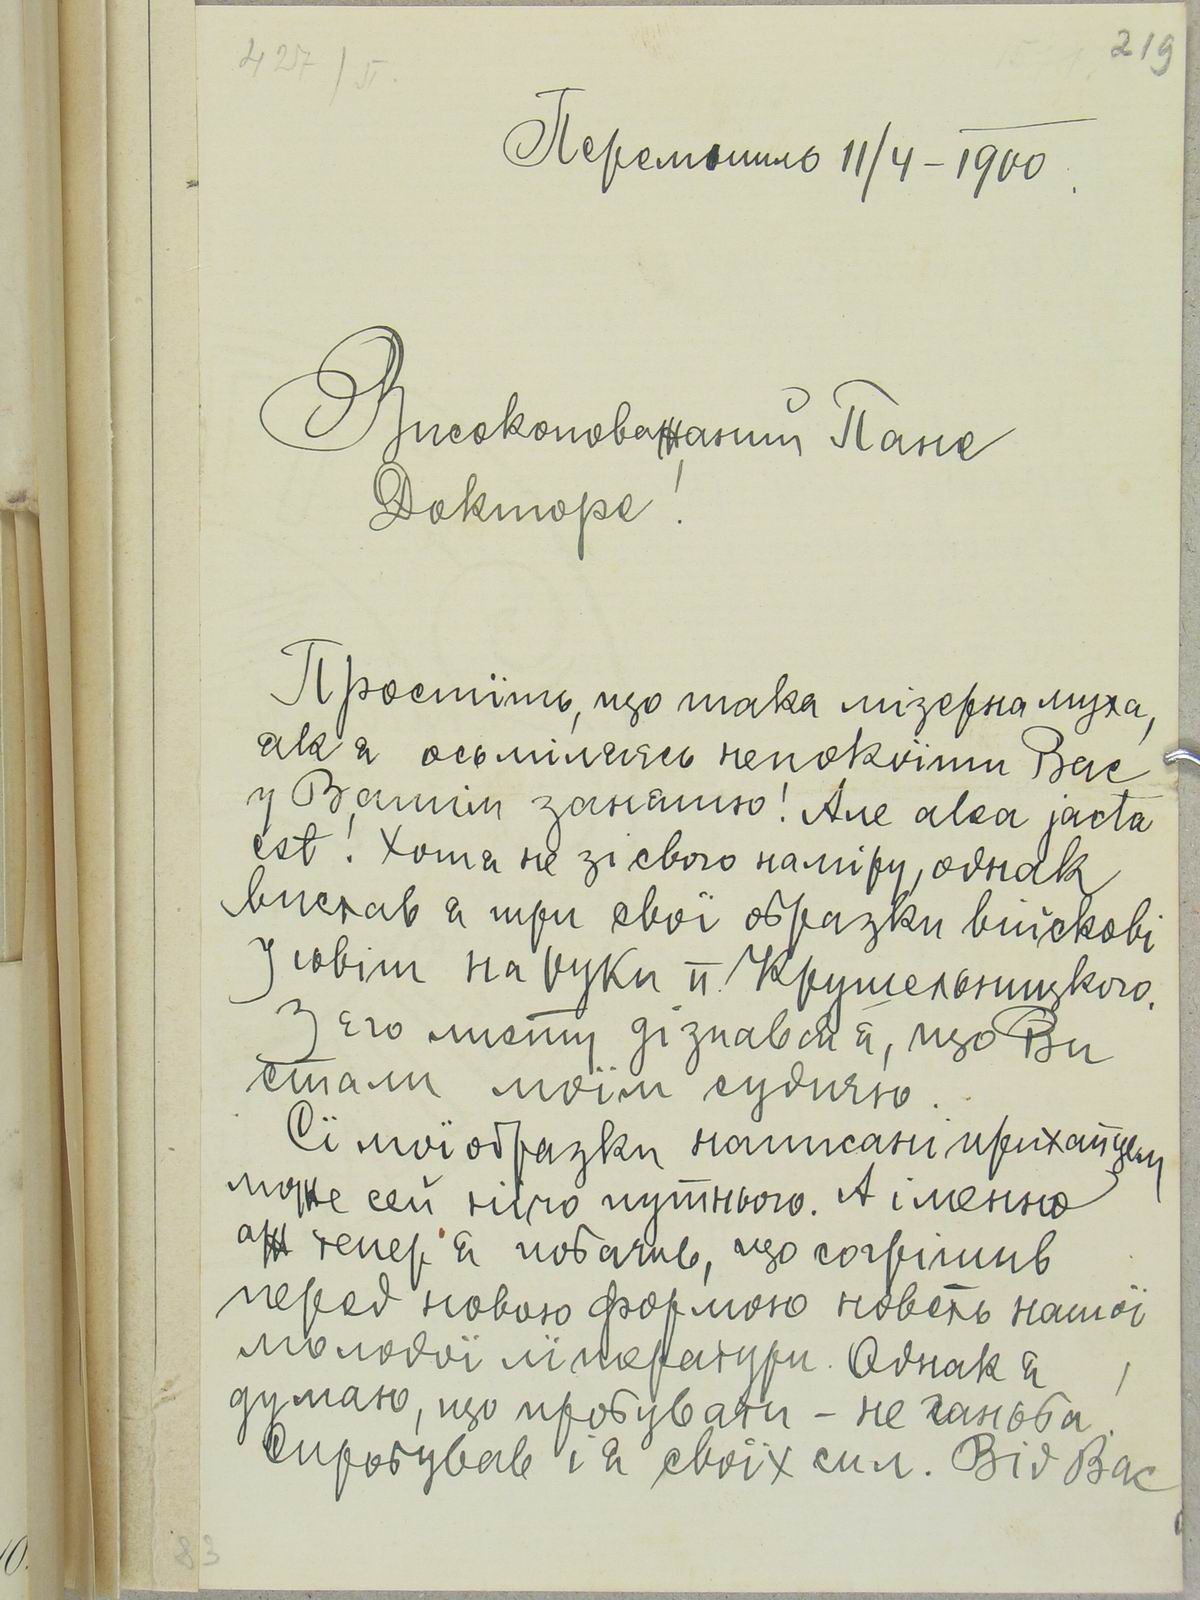 427/П.
219
Перемишль 11/4 – 1900.
Високоповажаний Пане
Докторе!
Простїть, що така мізерна муха,
як я осьмілилась непокоїти Вас
у Вашім занятю! Але alea jacta
est! Хотя не зі свого наміру, однак
вислав я три свої образки війскові
на руки п. Крушельницкого.
З єго листу дізнавсь я, що Ви
стали моїм судиєю.
Сї мої образки написані
може сей нічо путнього. А іменно
аж тепер я побачив, що согрішив
перед новою формою новель нашої
молодої лїтератури. Однак я
думаю, що пробувати – не ганьба!
Спробував і я своїх сил. Від Вас
83